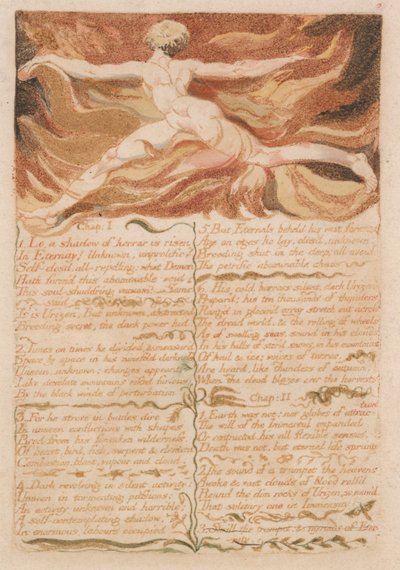 Chap: I
1. Lo, a shadow of horror is risen
In Eternity! Unknown, unprolific!
Self-closd, all-repelling: what Demon
Hath form'd this abominable void
This soul-shudd'ring vacuum? Some
said
It is Urizen, But unknown, abstracted
Brooding secret, the dark power hid.
2. Times on times he divided, & measur'd
Space by space in his ninefold darkness
Unseen, unknown: changes appeard
Like desolate mountains rifted furious
By the black winds of perturbation
3. For he strove in battles dire
In unseen conflictions with shapes
Bred from his forsaken wilderness,
Of beast, bird, fish, serpent & element
Combustion, blast, vapour and cloud.
4. Dark revolving in silent activity:
Unseen in tormenting passions;
An activity unknown and horrible;
A self-contemplating shadow,
In enormous labours occupied
5. But Eternals beheld his vast forests
Age on ages he lay, clos'd, unknown,
Brooding shut in the deep; all avoid
The petrific abominable chaos
6. His cold horrors silent, dark Urizen
Prepar'd: his ten thousands of thunders
Rang'd in gloom'd array stretch out across
The dread world, & the rolling of wheels
As of swelling seas, sound in his clouds
In his hills of stor'd snows, in his mountains
Of hail & ice; voices of terror,
Are heard, like thunders of autumn,
When the cloud blazes over the harvests
Chap: II
1. Earth was not: nor globes of attraction
The will of the Immortal expanded
Or contracted his all flexible senses.
Death was not, but eternal life sprung
2. The sound of a trumpet the heavens
Awoke & vast clouds of blood roll'd
Round the dim rocks of Urizen, so nam'd
That solitary one in Immensity
3. Shrill the trumpet: & myriads of Eter-
nity